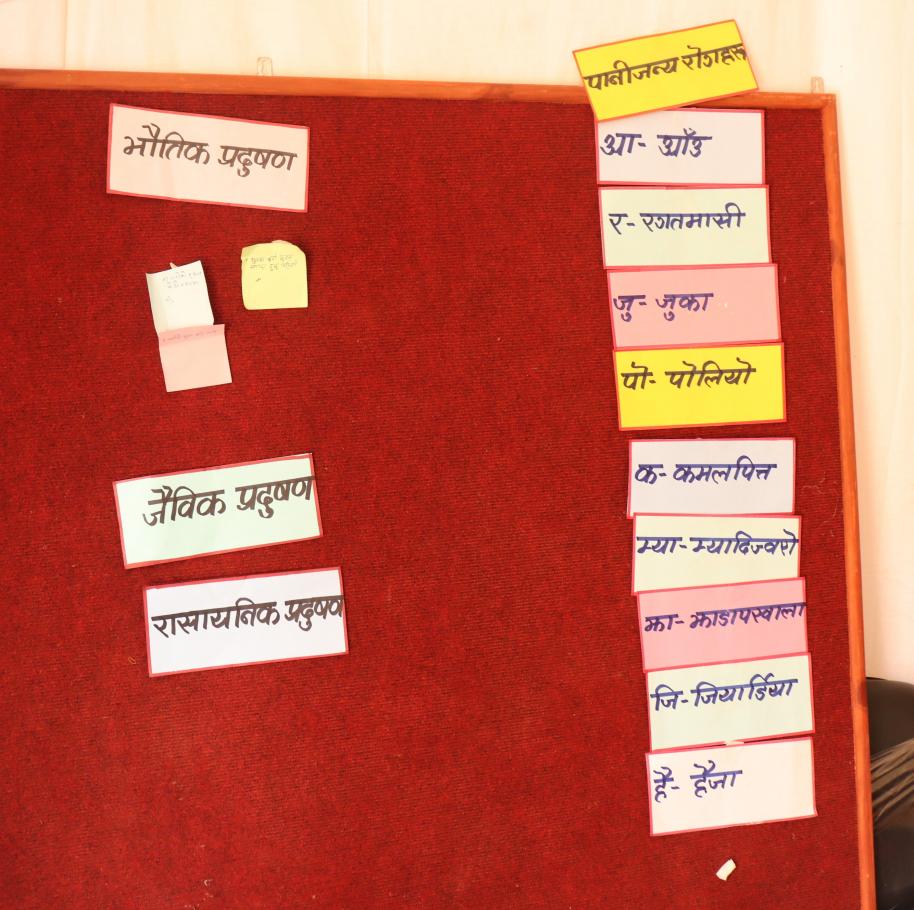 भौतिक प्रदुषण
जैविक प्रदुषण
रासायनिक प्रदुषण
पानीजन्य रोगहरु
आ- आँउ
र- रगतमासी
जु- जुका
पो- पोलियो
क- कमलपित्त
म्या- म्यादिज्वरो
झा- झाडापखाला
जि- जियार्डिया
है- हैजा